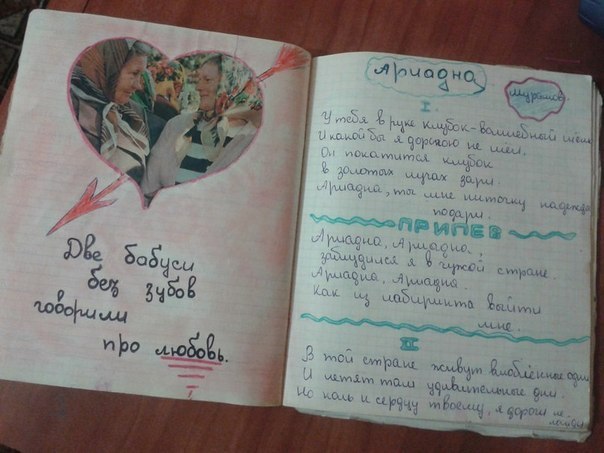 Две бабуси
без зубов
говорили
про любовь.
Ариадна
Муромов.
I
У тебя в руке клубок-волшебный
И какой бы я дорогою не шел,
Он покатится клубок
в золотых лучах зари.
Ариадна, ты мне ниточку надежды
подари.
ПРИПЕВ
Ариадна, Ариадна,
заблудился я в чужой стране.
Ариадна, Ариадна
Как из лабиринта выйти
мне.
II
В той стране живут влюблённые одни
И летят там удивительные дни.
Но коль к сердцу твоему, я дороги не
найду